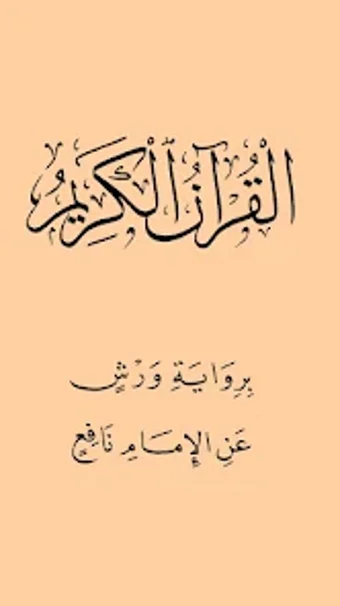 الْقُرْآنُ ٱلْكَرِيمُ
بِرِوَايَةِ وَرْشٍ
عَنِ الإِمَامِ نَافِعٍ